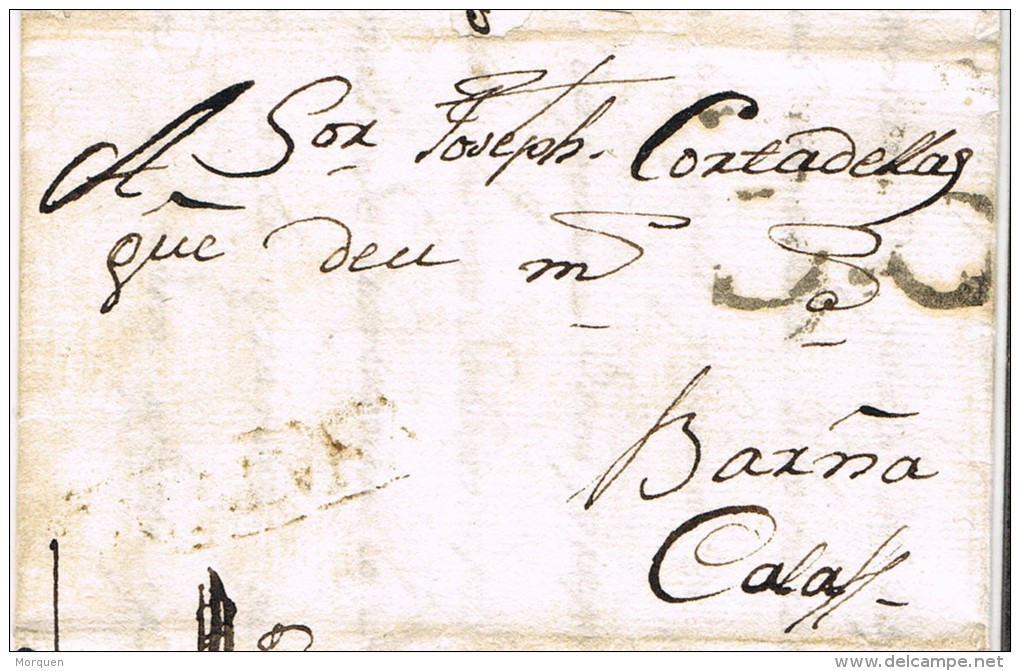 A Sor Joseph Cortadellas
que deu m a
Barña
Calaff
Morquen
www.delcampe.net